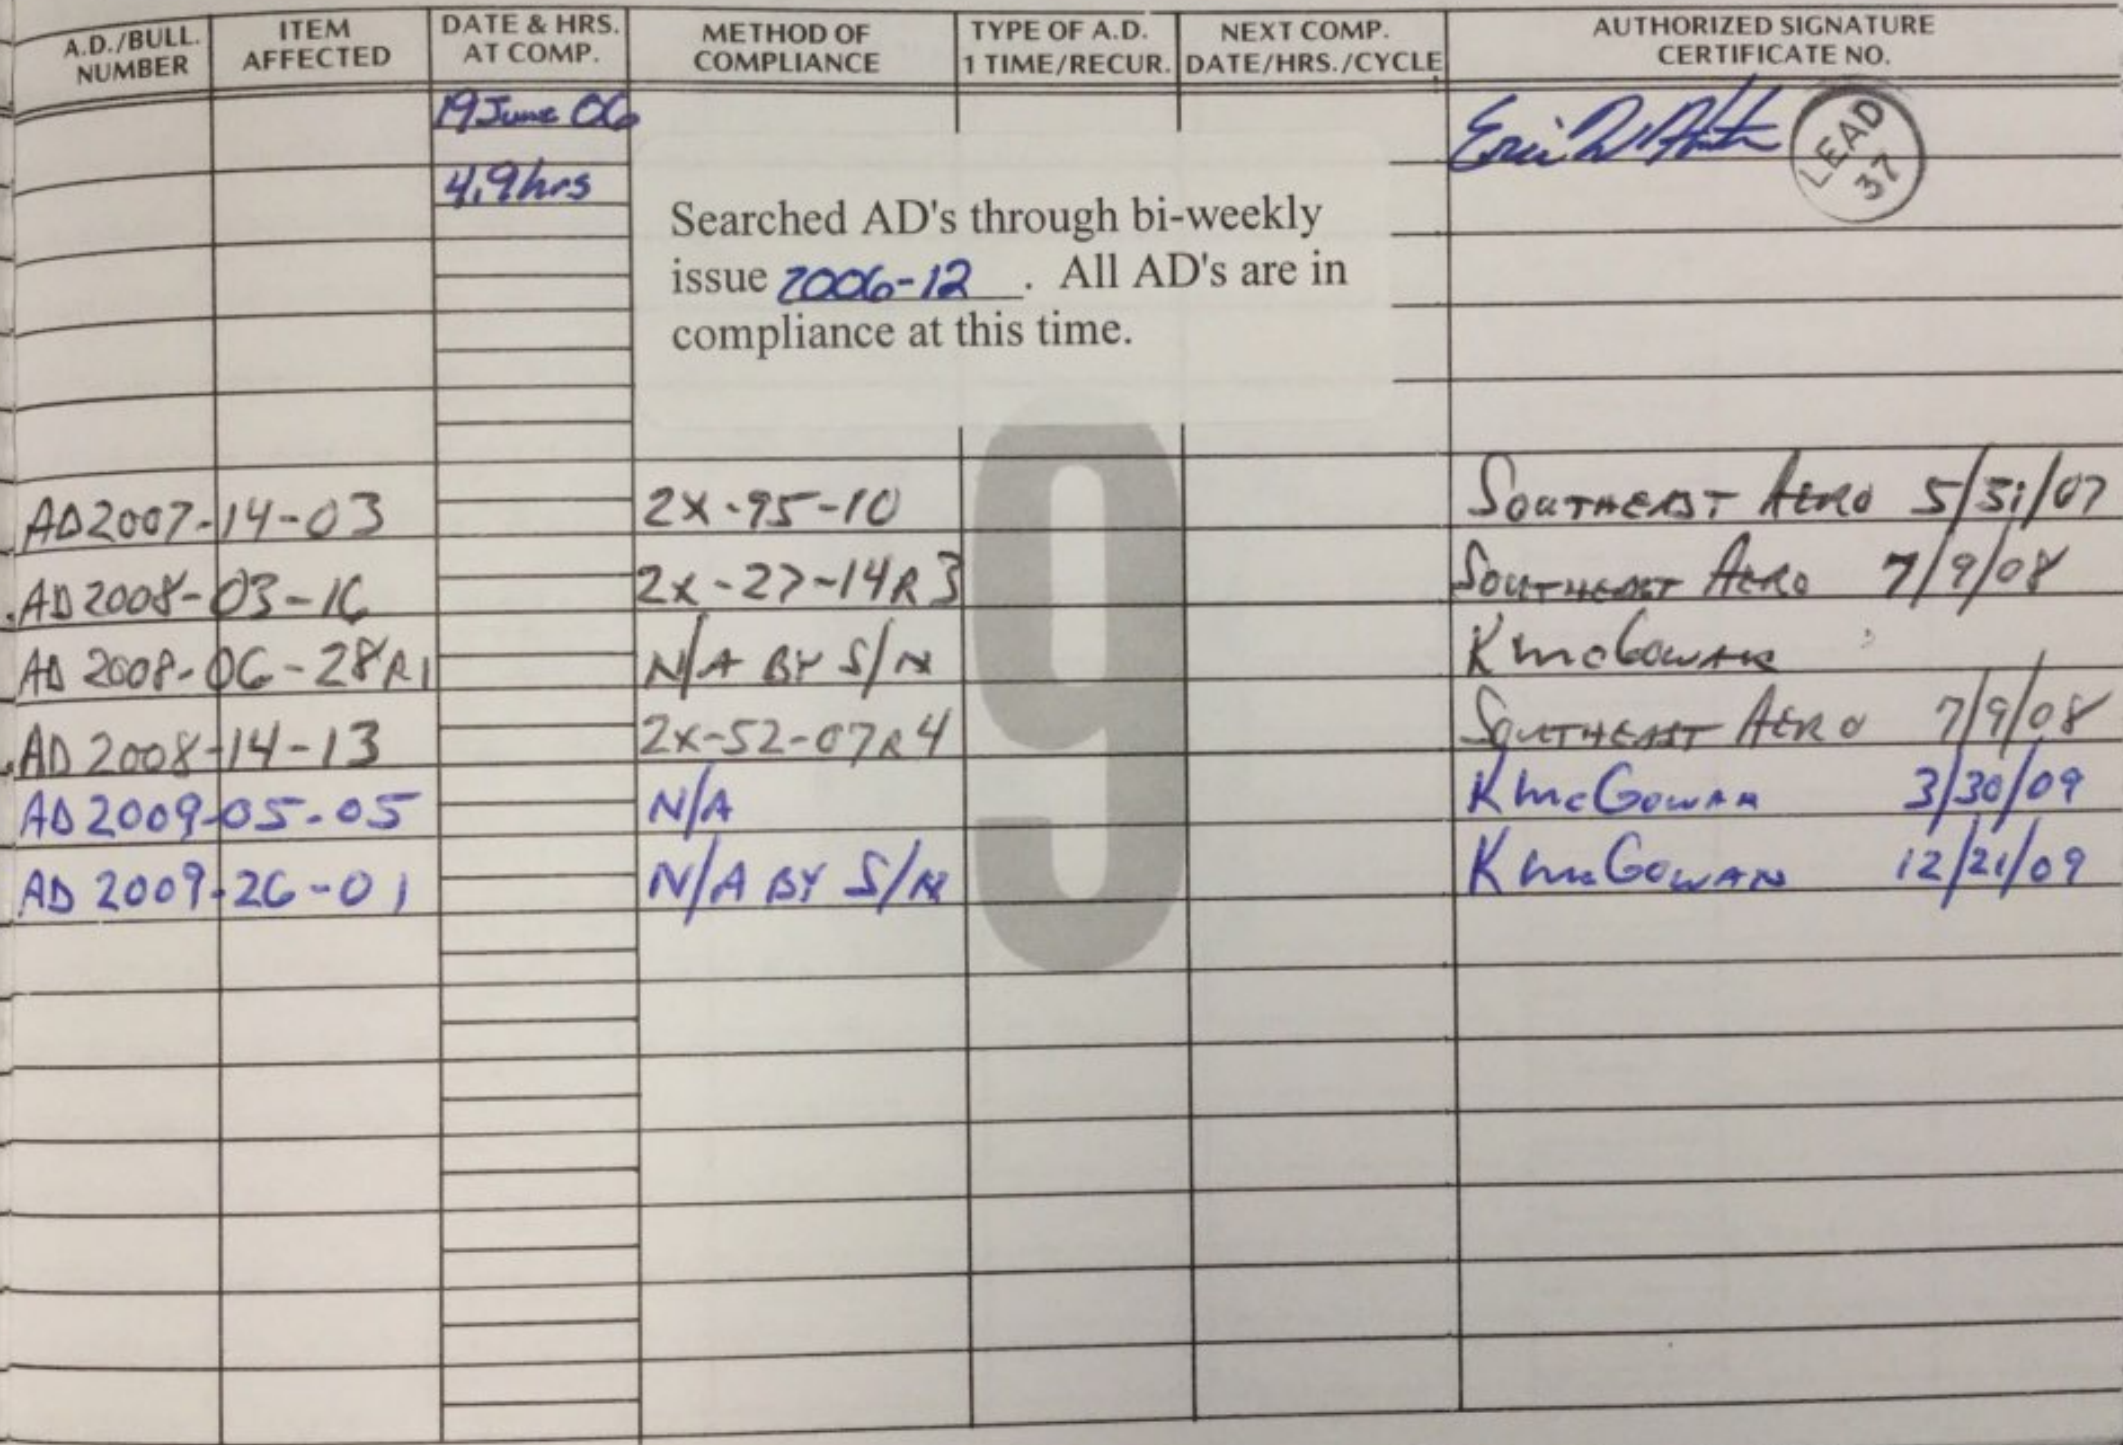 A.D./BULL. NUMBER
ITEM AFFECTED
DATE & HRS. AT COMP.
METHOD OF COMPLIANCE
TYPE OF A.D. 1 TIME/RECUR.
NEXT COMP. DATE/HRS./CYCLE
AUTHORIZED SIGNATURE CERTIFICATE NO.
19 June 06
LEAD 37
4.9 hrs
Searched AD's through bi-weekly
issue 2006-12. All AD's are in
compliance at this time.
9
AD 2007-14-03 2X-95-10 SOUTHEAST AERO 5/31/07
AD 2008-03-16 2X-27-14R3 SOUTHEAST AERO 7/9/08
AD 2008-06-28R1 N/A BY S/N K McGOWAN
AD 2008-14-13 2X-52-07R4 SOUTHEAST AERO 7/9/08
AD 2009-05-05 N/A K McGOWAN 3/30/09
AD 2009-26-01 N/A BY S/N K McGOWAN 12/21/09